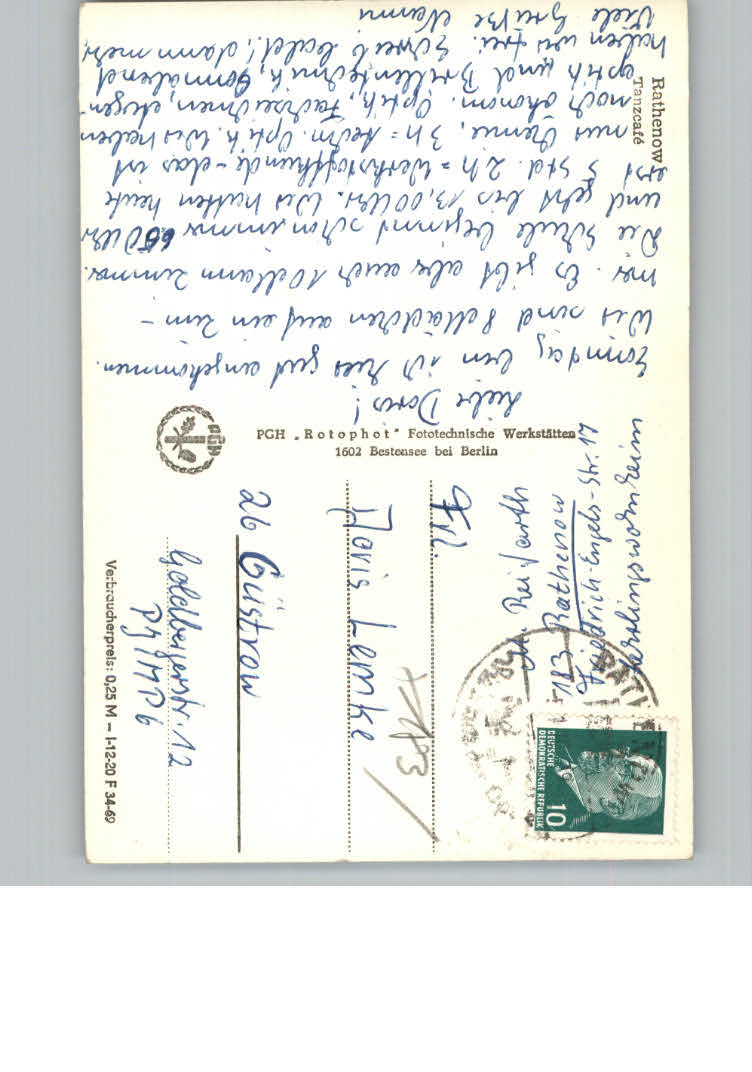 Rathenow
Tanzcafé
Liebe Doris!
Sonntag bin ich hier gut angekommen.
Wir sind 8 Mädchen auf ein Zim-
mer. Es gibt aber auch 10 Mann Zimmer.
Die Schule beginnt schon immer 650 Uhr
und geht bis 13,00 Uhr. Wir hatten heute
erst 5 Std. 2h = Werkstoffkunde - das ist
nur Chemie, 3h = techn. Optik. Wir haben
noch ökonom. Optik, Fachzeichnen, Augen-
optik und Brillentechnik, Sonnabend
haben wir frei. Schreib bald!, dann mehr
Viele Grüße
PGH „Rotophot" Fototechnische Werkstätten
1602 Bestensee bei Berlin
PGH
183 Rathenow
Friedrich-Engels-Str. 17
Lehrlingswohnheim
DEUTSCHE
DEMOKRATISCHE REPUBLIK
10
Frl.
Doris Lemke
26 Güstrow
Goldbergerstr. 12
Verbraucherpreis: 0,25 M — I-12-20 F 34-69